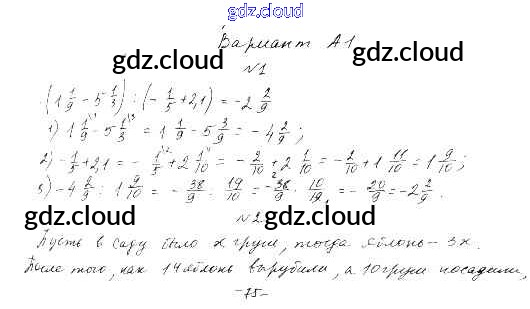 gdz.cloud
Вариант А1
gdz.cloud
gdz.cloud
№1
(1 1/9 - 5 1/3) : (- 1/5 + 2,1) = -2 2/9
1) 1 1/9 \1 - 5 1/3 \3 = 1 1/9 - 5 3/9 = -4 2/9;
2) - 1/5 + 2,1 = - 1/5 \2 + 2 1/10 = - 2/10 + 2 1/10 = - 2/10 + 1 11/10 = 1 9/10;
3) -4 2/9 : 1 9/10 = - 38/9 : 19/10 = - 38/9 · 10/19 = - 20/9 = -2 2/9.
gdz.cloud
№2
gdz.cloud
Пусть в саду было х груш, тогда яблонь - 3х.
После того, как 14 яблонь вырубили, а 10 груш посадили,
-75-